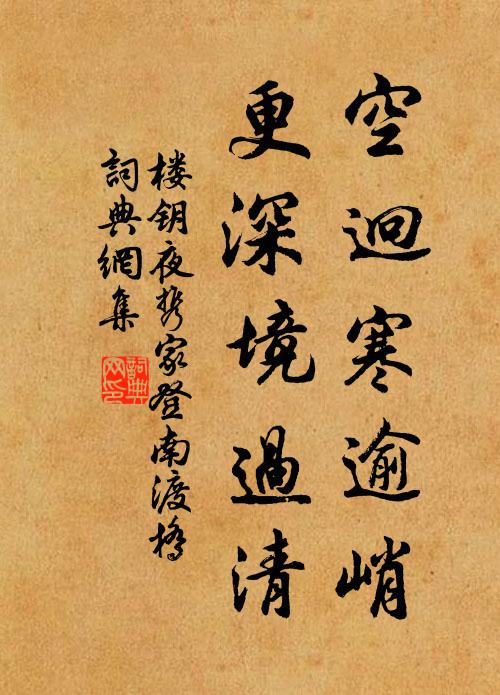 空迥寒逾峭
更深境過清
楼钥夜携家登南渡橋
詞典網集
詞典
网印